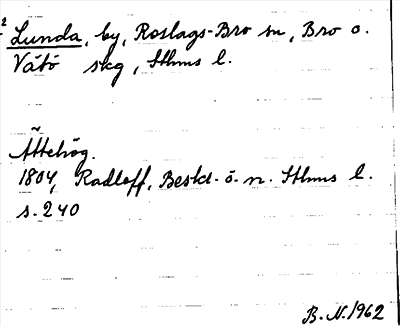 2 Lunda, by, Roslags-Bro sn, Bro o.
Vätö skg, Sthms l.
Ättehög.
1804, Radloff, Beskr. ö. n. Sthms l.
s. 240
B. N. 1962